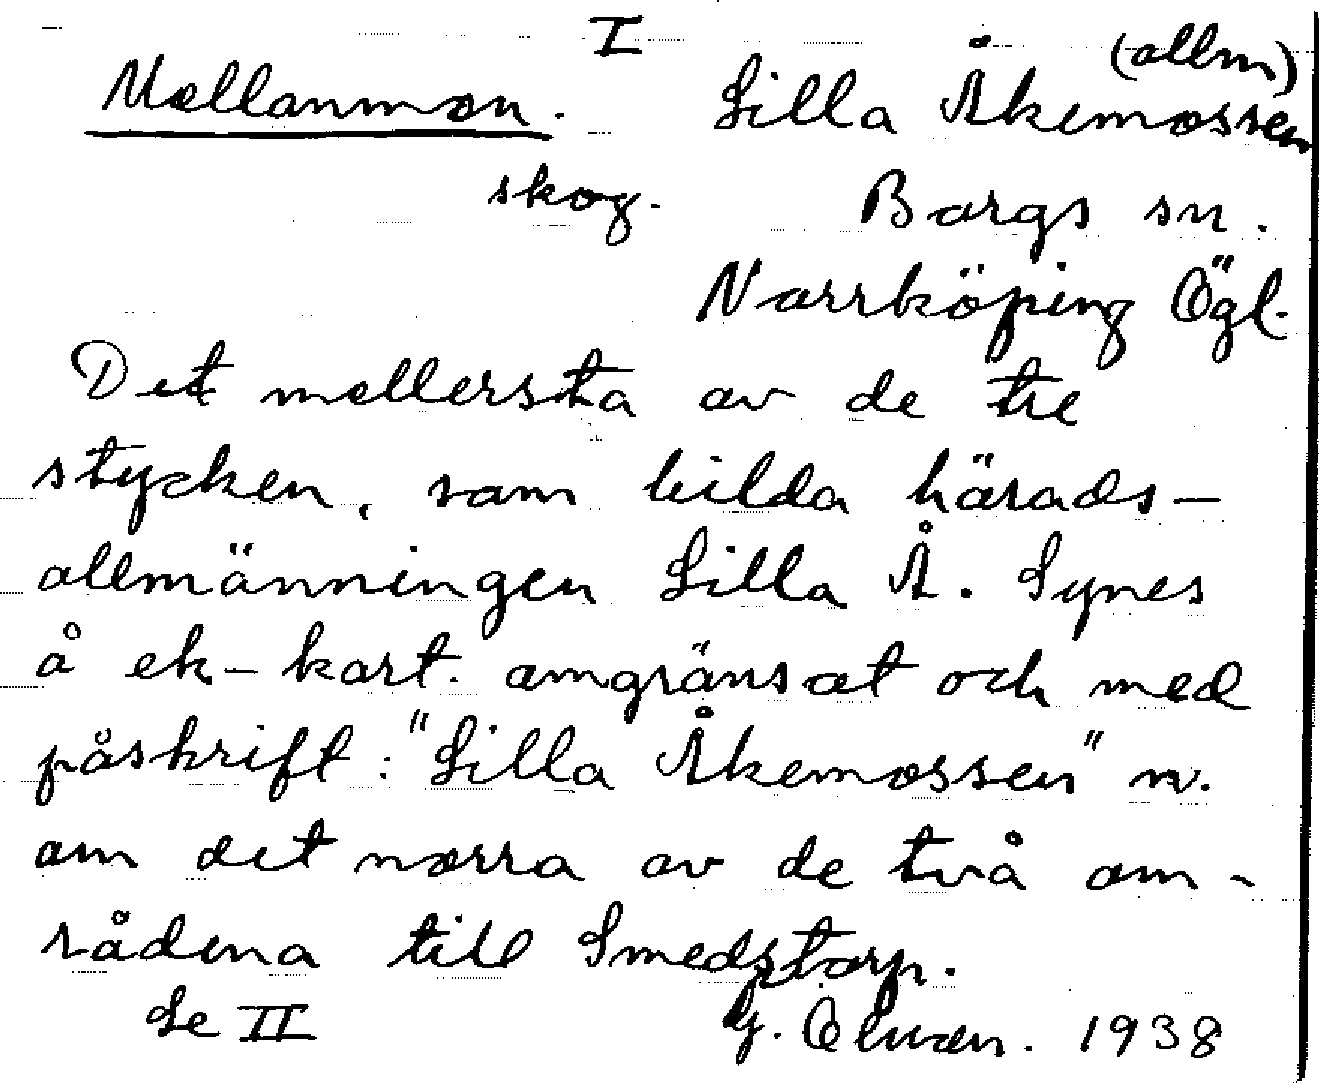 I
(allm)
Mellanmon. Lilla Åkemossen
skog. Borgs sn.
Norrköping Ögl.
Det mellersta av de tre
stycken, som bilda härads-
allmänningen Lilla Å. Synes
å ek-kart. omgränsat och med
påskrift: "Lilla Åkemossen" nv.
om det norra av de två om-
rådena till Smedstorp.
Se II G. 1938